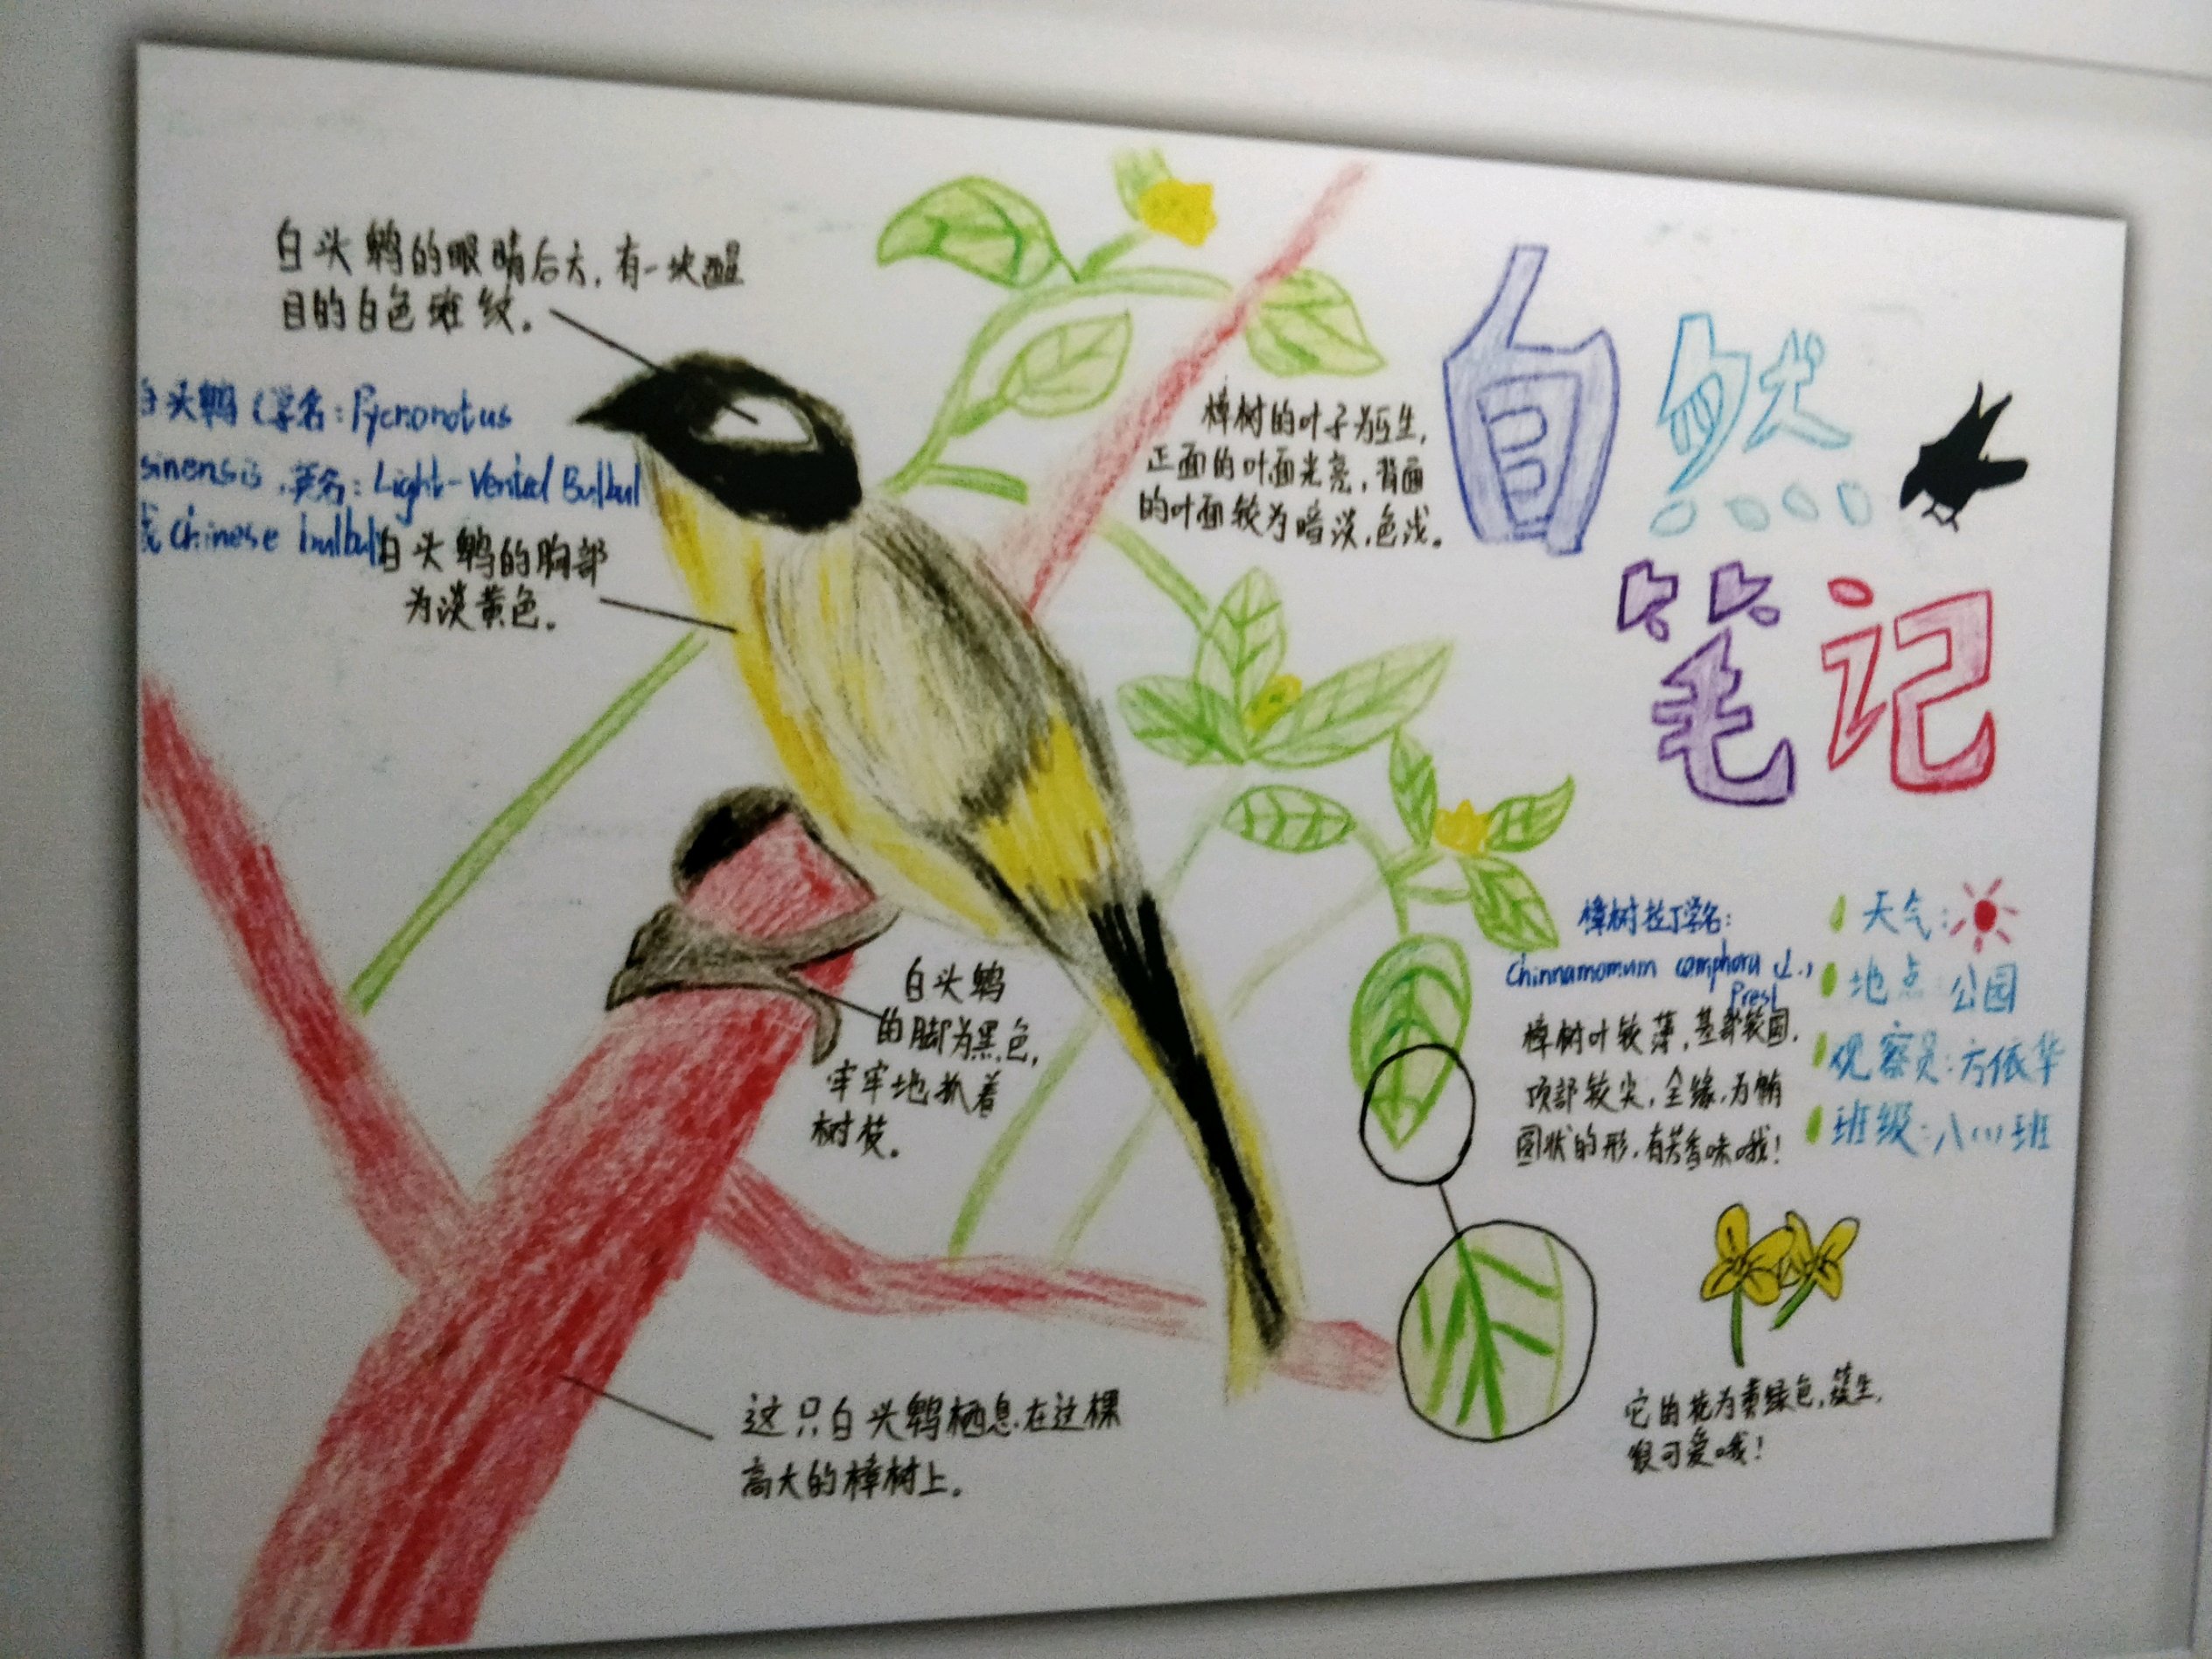 自然
笔记
白头鹎的眼睛后方,有一块醒
目的白色斑纹。
白头鹎(学名:Pycnonotus
sinensis,英名:Light-Vented Bulbul
或Chinese bulbul
白头鹎的胸部
为淡黄色。
樟树的叶子为互生,
正面的叶面光亮,背面
的叶面较为暗淡,色浅。
白头鹎
的脚为黑色,
牢牢地抓着
树枝。
这只白头鹎栖息在这棵
高大的樟树上。
樟树拉丁学名:
Chinnamomum camphora (L.)
Presl
樟树叶较薄,基部较圆,
顶部较尖,全缘,为椭
圆状的形,有芳香味哦!
天气:
地点:公园
观察员:方依华
班级:八(1)班
它的花为黄绿色,簇生,
很可爱哦!